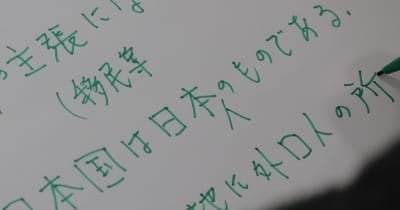 の主張には
(移民等
日本国は日本人のものである.
地に外口人の所